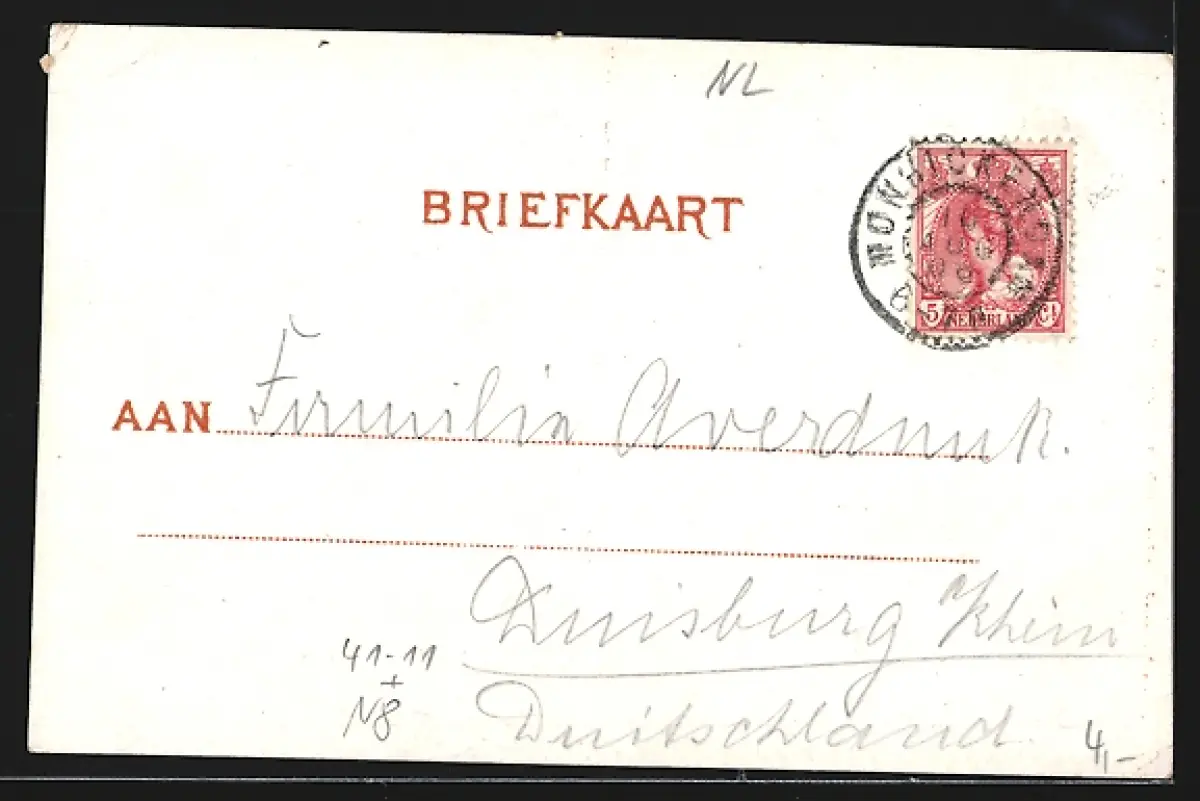 NL
BRIEFKAART
MONNICKENDAM
5 NEDERLAND Ct
AAN Familie Averdunk.
Duisburg Rhein
Duitschland
41-11
+
N8
4,-